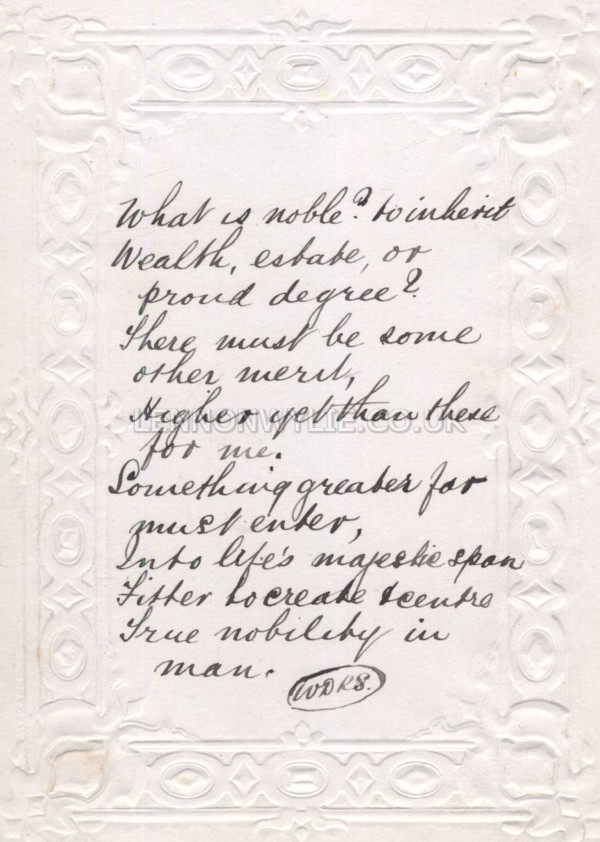 What is noble? to inherit
Wealth, estate, or
proud degree?
There must be some
other merit,
Higher yet than these
for me.
LENNONWYLIE.CO.UK
Something greater far
must enter,
Into life's majestic span
Fitter to create & centre
True nobility in
man.
WDRS.